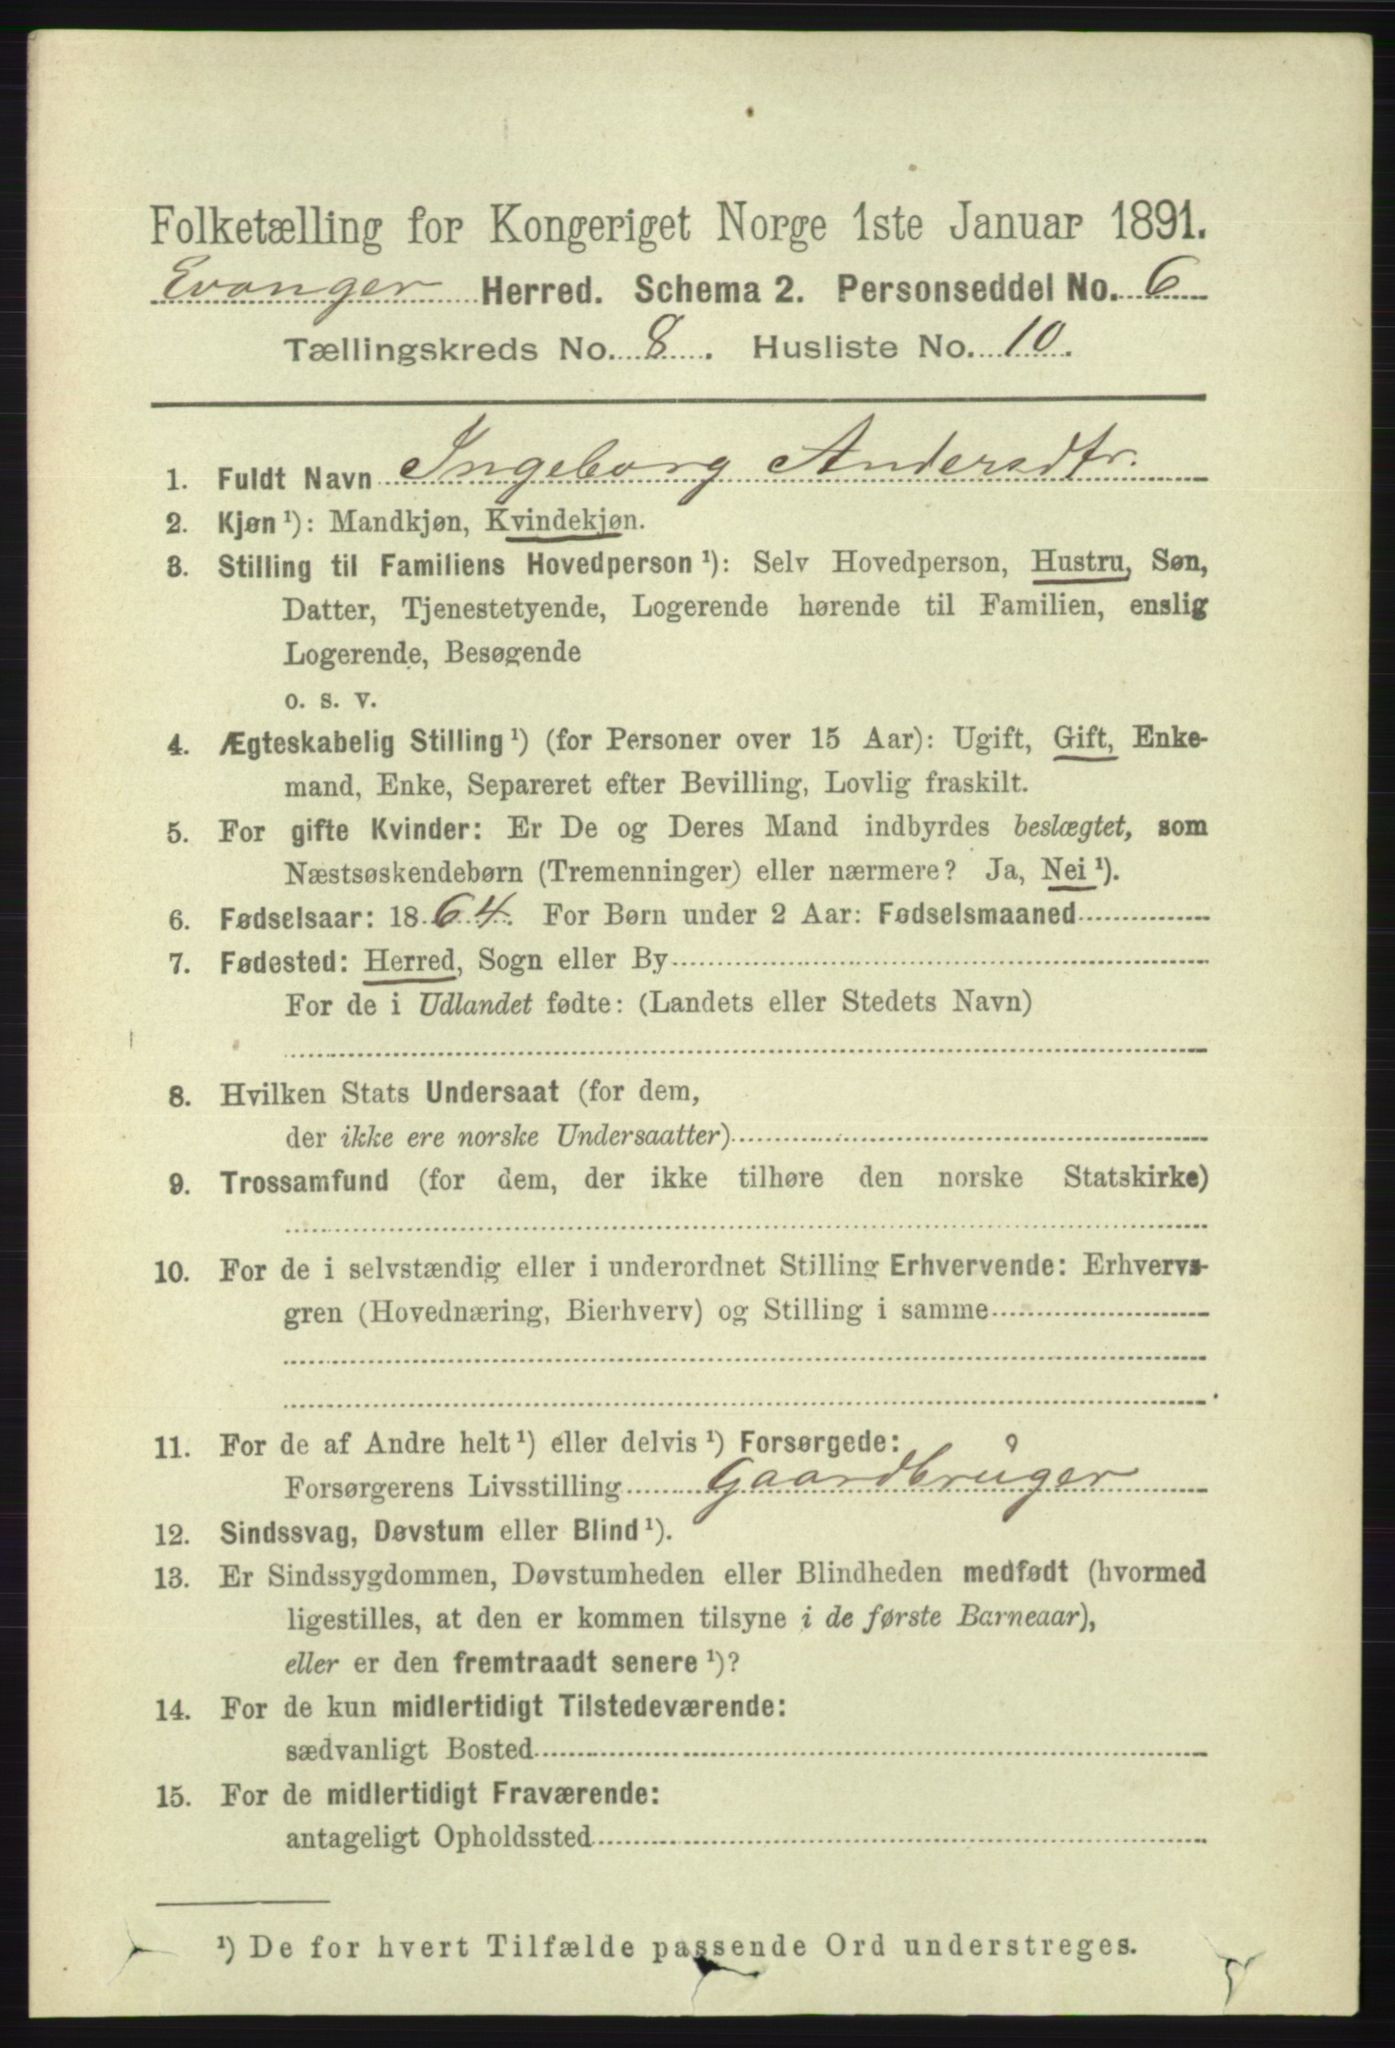 Folketælling for Kongeriget Norge 1ste Januar 1891.
Evanger Herred. Schema 2. Personseddel No. 6
Tællingskreds No. 8. Husliste No. 10.
1. Fuldt Navn Ingeborg Andersdtr.
2. Kjøn¹): Mandkjøn, Kvindekjøn.
3. Stilling til Familiens Hovedperson¹): Selv Hovedperson, Hustru, Søn,
Datter, Tjenestetyende, Logerende hørende til Familien, enslig
Logerende, Besøgende
o. s. v.
4. Ægteskabelig Stilling¹) (for Personer over 15 Aar): Ugift, Gift, Enke-
mand, Enke, Separeret efter Bevilling, Lovlig fraskilt.
5. For gifte Kvinder: Er De og Deres Mand indbyrdes beslægtet, som
Næstsøskendebørn (Tremenninger) eller nærmere? Ja, Nei¹).
6. Fødselsaar: 1864. For Børn under 2 Aar: Fødselsmaaned
7. Fødested: Herred, Sogn eller By
For de i Udlandet fødte: (Landets eller Stedets Navn)
8. Hvilken Stats Undersaat (for dem,
der ikke ere norske Undersaatter)
9. Trossamfund (for dem, der ikke tilhøre den norske Statskirke)
10. For de i selvstændig eller i underordnet Stilling Erhvervende: Erhvervs-
gren (Hovednæring, Bierhverv) og Stilling i samme
11. For de af Andre helt¹) eller delvis¹) Forsørgede:
Forsørgerens Livsstilling Gaardbrüger
12. Sindssvag, Døvstum eller Blind¹).
13. Er Sindssygdommen, Døvstumheden eller Blindheden medfødt (hvormed
ligestilles, at den er kommen tilsyne i de første Barneaar),
eller er den fremtraadt senere¹)?
14. For de kun midlertidigt Tilstedeværende:
sædvanligt Bosted
15. For de midlertidigt Fraværende:
antageligt Opholdssted
¹) De for hvert Tilfælde passende Ord understreges.